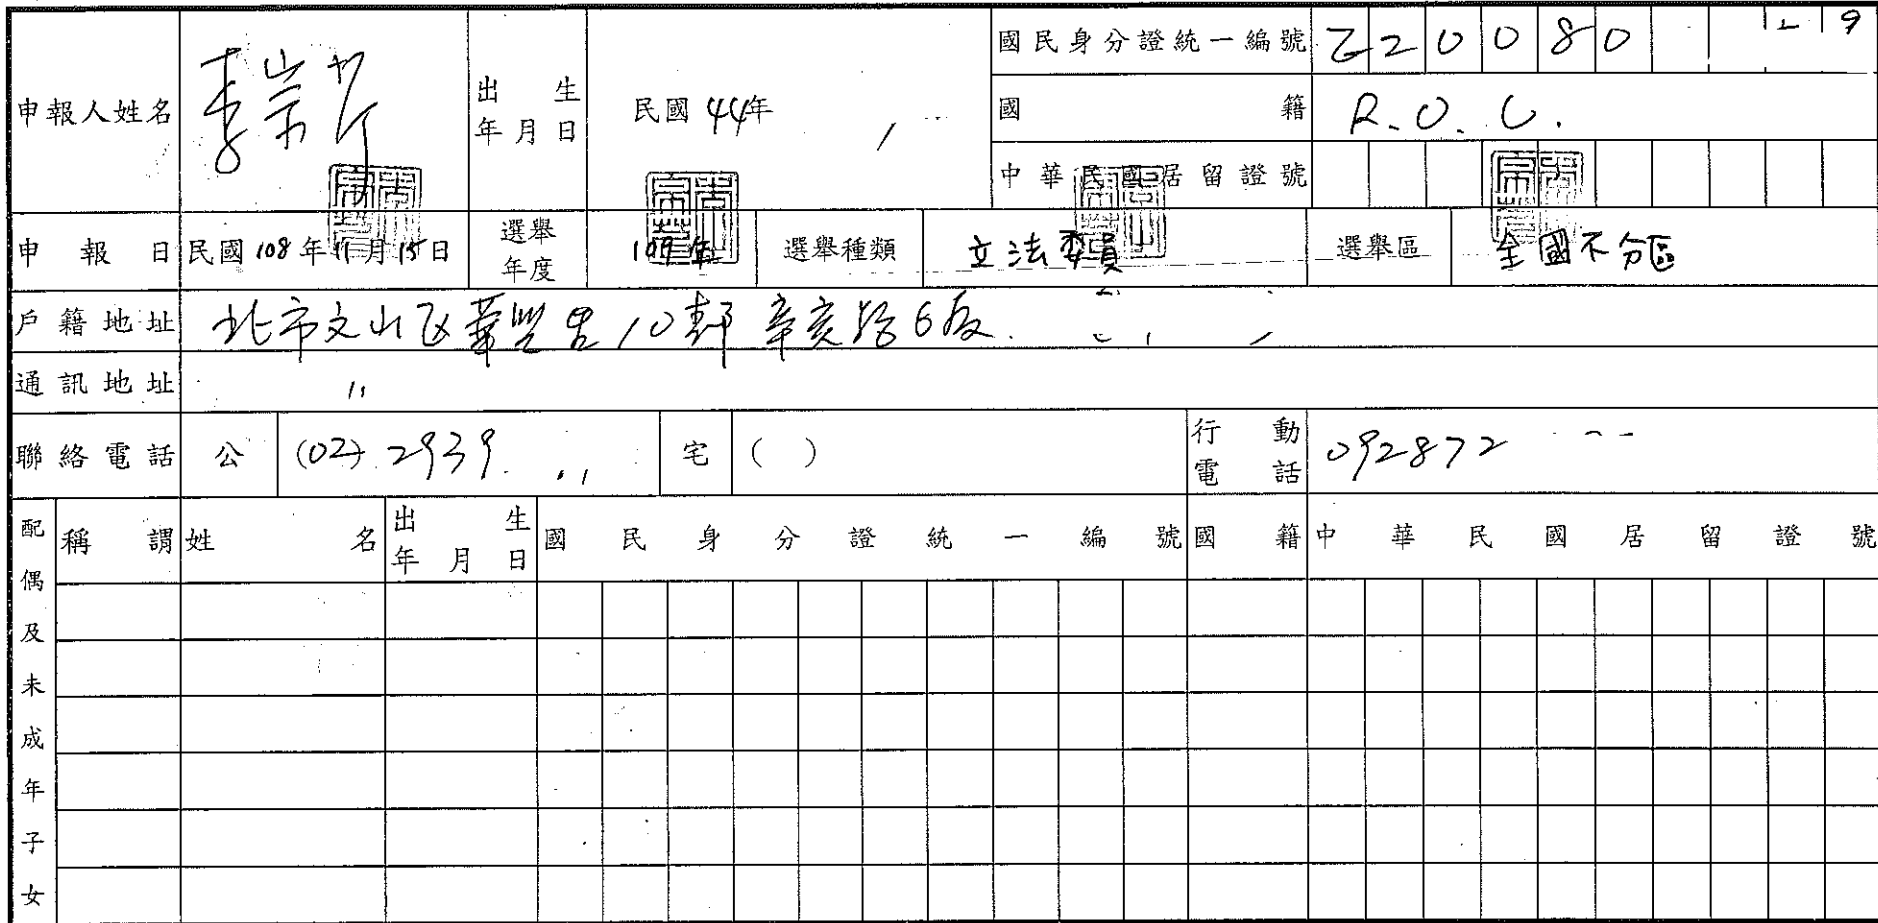 申報人姓名 李崇 出生年月日 民國44年 國民身分證統一編號 220080 9
國籍 R.O.C.
中華民國居留證號
申報日 民國108年11月15日 選舉年度 109年 選舉種類 立法委員 選舉區 全國不分區
戶籍地址 北市文山區華興里10鄰辛亥路6段
通訊地址 〃
聯絡電話 公 (02) 2939 宅 ( ) 行動電話 092872
配偶及未成年子女 稱謂 姓名 出生年月日 國民身分證統一編號 國籍 中華民國居留證號